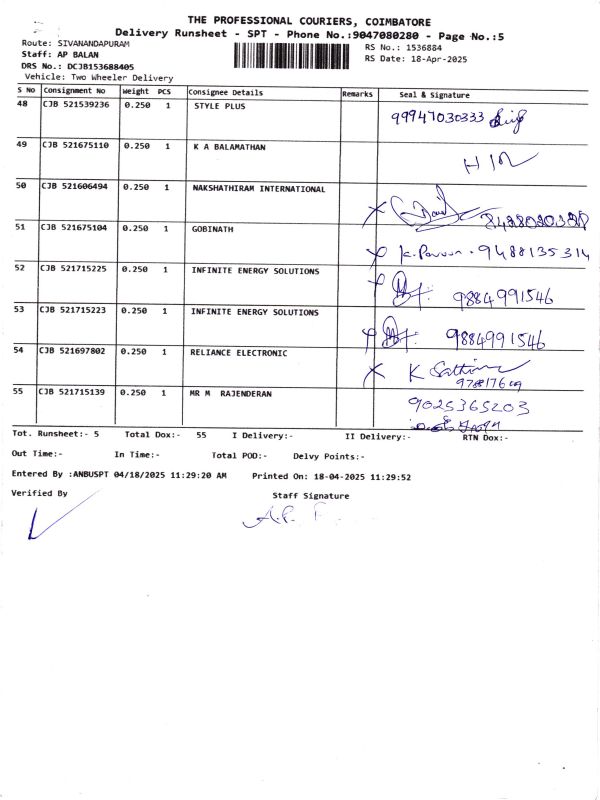 THE PROFESSIONAL COURIERS, COIMBATORE
Delivery Runsheet - SPT - Phone No.:9047080280 - Page No.:5
Route: SIVANANDAPURAM RS No.: 1536884
Staff: AP BALAN RS Date: 18-Apr-2025
DRS No.: DCJB153688405
Vehicle: Two Wheeler Delivery
S No Consignment No Weight PCS Consignee Details Remarks Seal & Signature
48 CJB 521539236 0.250 1 STYLE PLUS 99947030333
49 CJB 521675110 0.250 1 K A BALAMATHAN
50 CJB 521606494 0.250 1 NAKSHATHIRAM INTERNATIONAL
51 CJB 521675104 0.250 1 GOBINATH K. Pavan . 9488135314
52 CJB 521715225 0.250 1 INFINITE ENERGY SOLUTIONS 9884991546
53 CJB 521715223 0.250 1 INFINITE ENERGY SOLUTIONS 9884991546
54 CJB 521697802 0.250 1 RELIANCE ELECTRONIC K
55 CJB 521715139 0.250 1 MR M RAJENDERAN 9025365203
Tot. Runsheet:- 5 Total Dox:- 55 I Delivery:- II Delivery:- RTN Dox:-
Out Time:- In Time:- Total POD:- Delvy Points:-
Entered By :ANBUSPT 04/18/2025 11:29:20 AM Printed On: 18-04-2025 11:29:52
Verified By Staff Signature